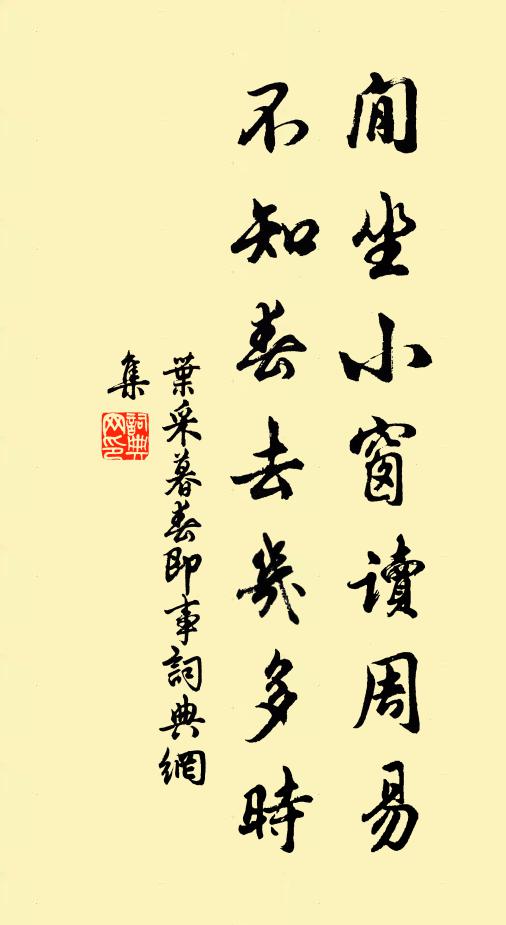 閒坐小窗讀周易
不知春去幾多時
葉采暮春即事詞典網
集
詞典
网印